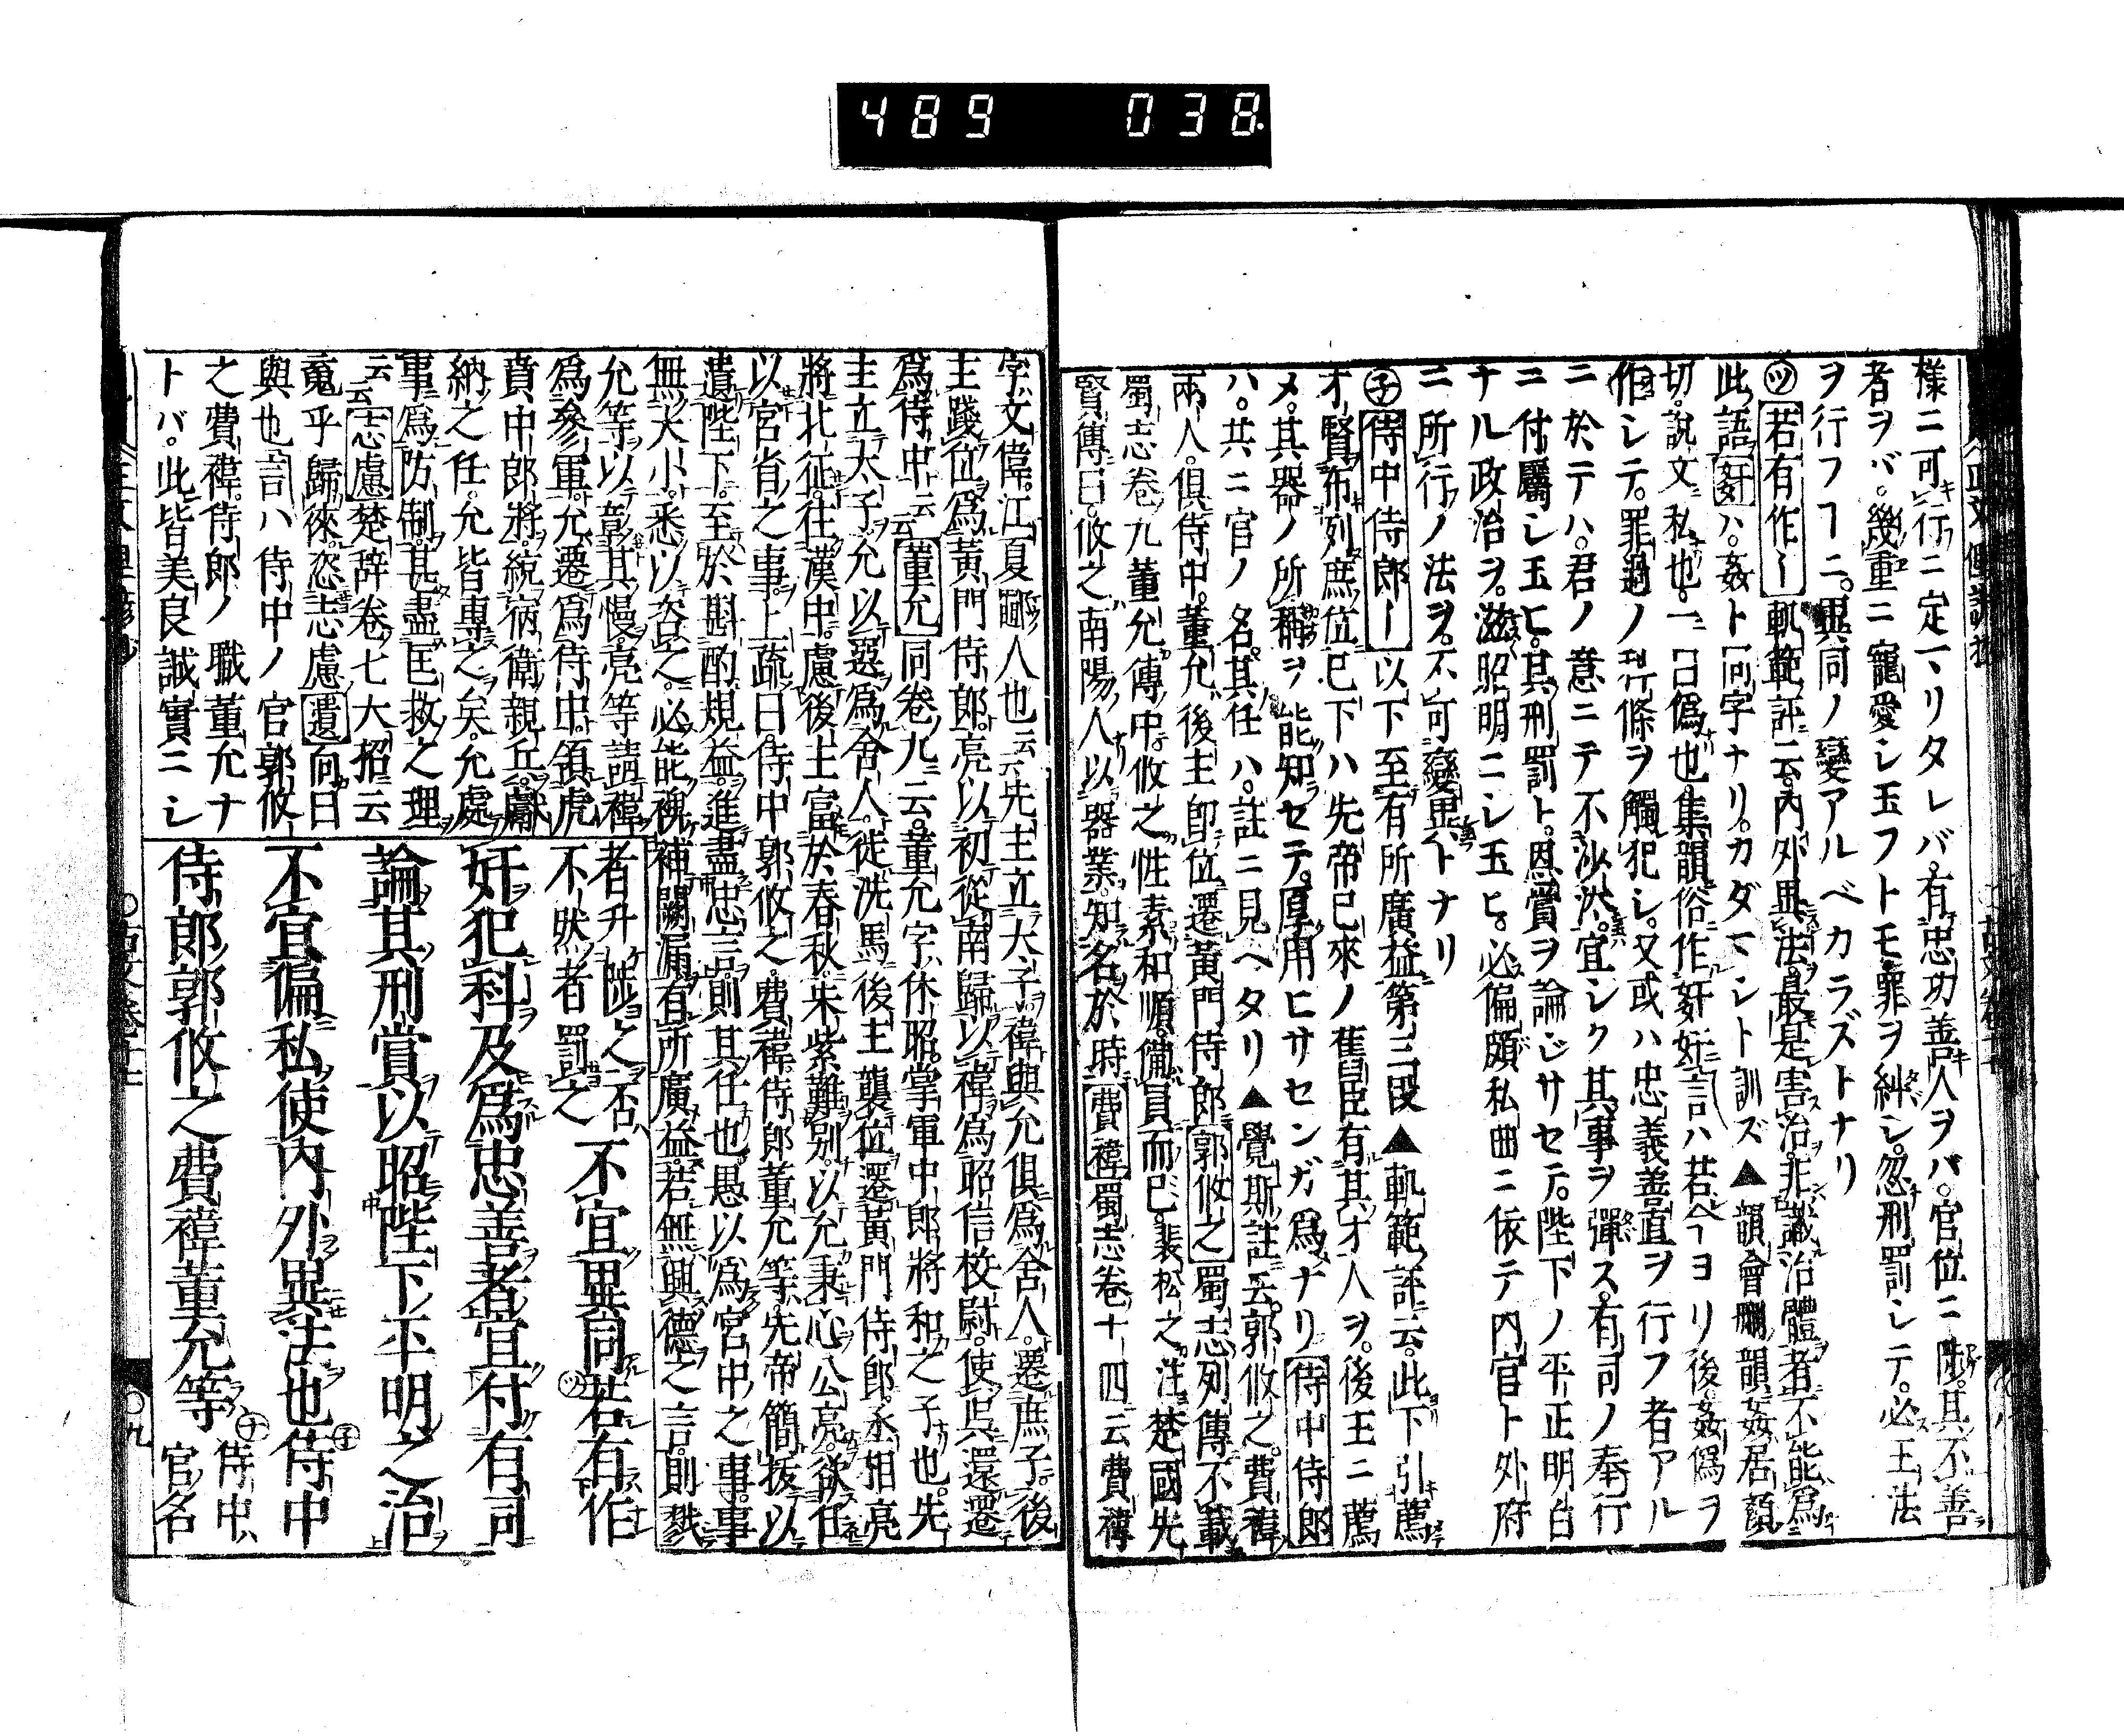 489 038
樣ニ可行ニ定ヽリタレバ。有忠功善人ヲバ。官位ニ陟。其不善
者ヲバ。幾重ニ寵愛シ玉フトモ罪ヲ糾シ。忽刑罰シテ。必王法
ヲ行フヿニ。異同ノ變アルベカラズトナリ
ツ若有作ー軌範評云。內外異法。最是害治。非識治體者不能爲
此語奸ハ。姦ト同字ナリ。カダマシト訓ズ▲韻會刪韻姦居顏
切。說文私也。一曰僞也。集韻俗作奸奸言ハ若ヘヿヨリ後姦僞ヲ
作シテ。罪過ノ科條ヲ觸犯シ。又或ハ忠義善直ヲ行フ者アル
ニ於テハ。君ノ意ニテ不沙汰。宜シク其事ヲ彈ス。有司ノ奉行
ニ付屬シ玉ヒ。其刑罰ト。恩賞ヲ論ジサセテ。陛下ノ平正明白
ナル政治ヲ。滋昭明ニシ玉ヒ。必偏頗私曲ニ依テ內官ト外府
ニ所行ノ法ヲ。不可變異トナリ
子侍中侍郎ー以下至有所廣益第三段▲軌範評云。此下引薦
才賢布列庶位已下ハ先帝已來ノ舊臣有其才人ヲ。後主ニ薦
メ。其器ノ所稱ヲ能知セテ。厚用ヒサセンガ爲ナリ侍中侍郎
ハ。共ニ官ノ名。其任ハ。註ニ見ヘタリ▲覺斯註云。郭攸之。費禕
兩人。俱侍中。董允後主卽位遷黃門侍郎郭攸之蜀志列傳不載
蜀志卷九董允傳中。攸之性素和順。備員而已。裴松之。注楚國先
賢傳曰。攸之南陽人以器業。知名於時費禕蜀志卷十四云費禕
字文偉。江夏鄳人也云云先主立太子禕與允俱爲舍人。遷庶子。後
主踐位爲黃門侍郎。亮以初從南歸以禕爲昭信校尉。使吳還遷
爲侍中云云董允同卷九ニ云。董允字休昭。掌軍中郎將和之子也。先
主立太子允以選爲舍人。徙洗馬後主襲位遷黃門侍郎。丞相亮
將北征。往漢中。慮後主富於春秋。朱紫難別。以允秉心公亮。欲任
以宮省之事。上疏曰。侍中郭攸之。費禕侍郎董允等。先帝簡拔以
遺陛下。至於斟酌規益。進盡忠言則其任也。愚以爲宮中之事。事
無大小。悉以咨之。必能裨補闕漏。有所廣益。若無興德之言。則戮
允等以章其慢。亮等請禕
爲參軍。允遷爲侍中。領虎
賁中郎將。統宿衛親兵。獻
納之任。允皆專之矣。允處
事爲防制。甚盡匡救之理
云云志慮楚辞卷七大招云
䰟乎歸徠。恣志慮遺何曰
與也言ハ侍中ノ官郭攸
之費禕。侍郎ノ職董允ナ
トバ。此皆美良誠實ニシ
者升陟之否
不然者罰之
不宜異同ツ若有作
奸犯科及爲忠善者宜付有司
論其刑賞以昭陛下平明之治
不宜偏私使內外異法也子侍中
侍郎郭攸之費禕董允等ナ侍中
官名